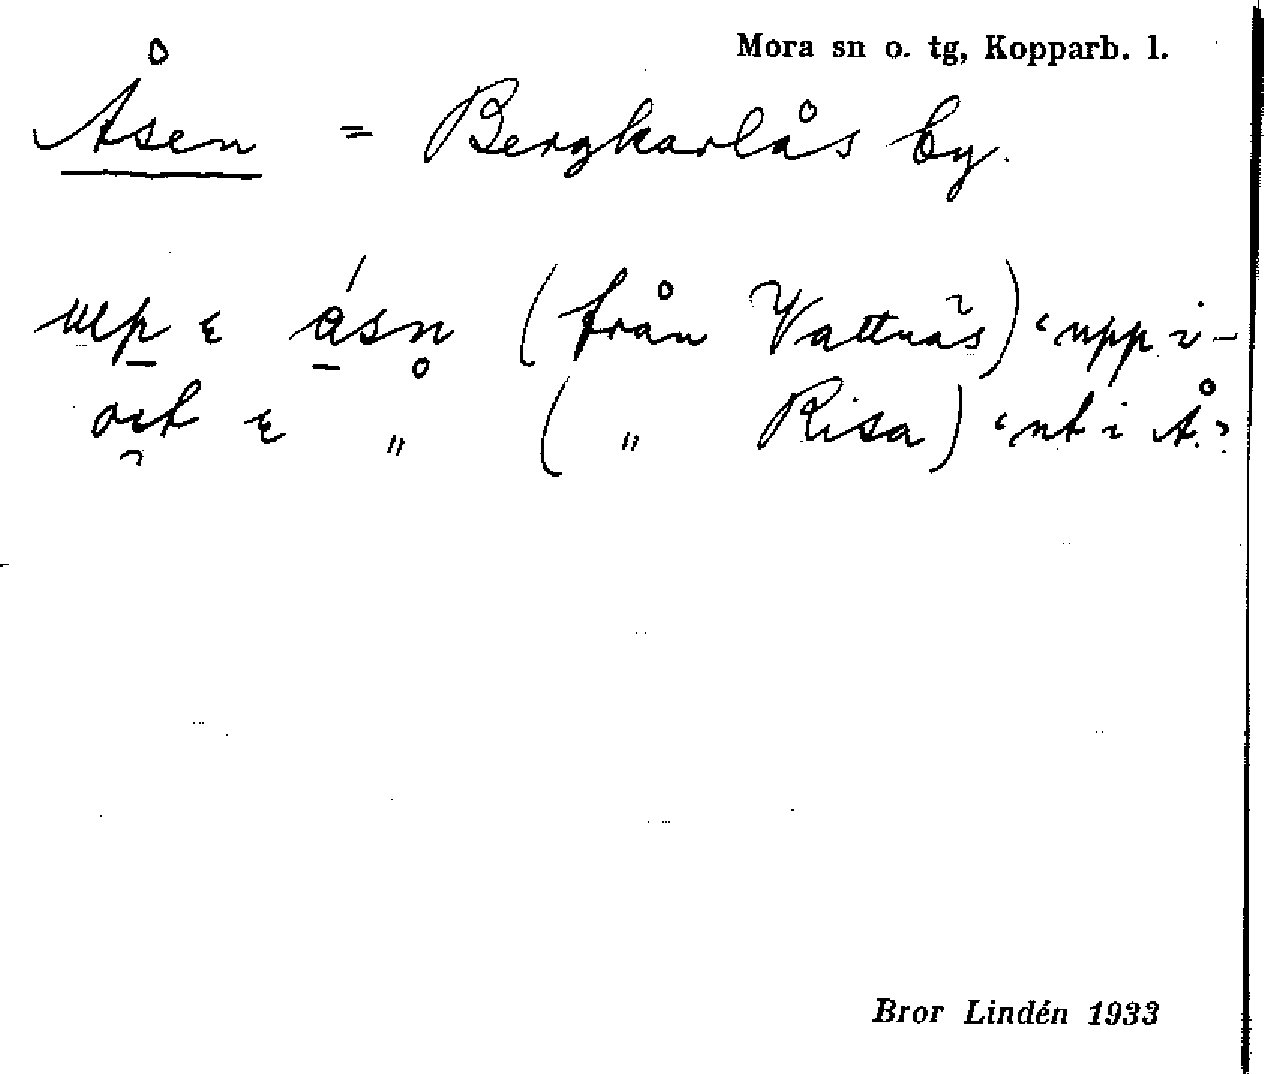 Mora sn o. tg, Kopparb. l.
Åsen = Bergkarlås by.
ɛ ásn (från Vattnäs) ‘upp i –
ɛ „ ( „ Risa) ‘ut i Å.’
Bror Lindén 1933